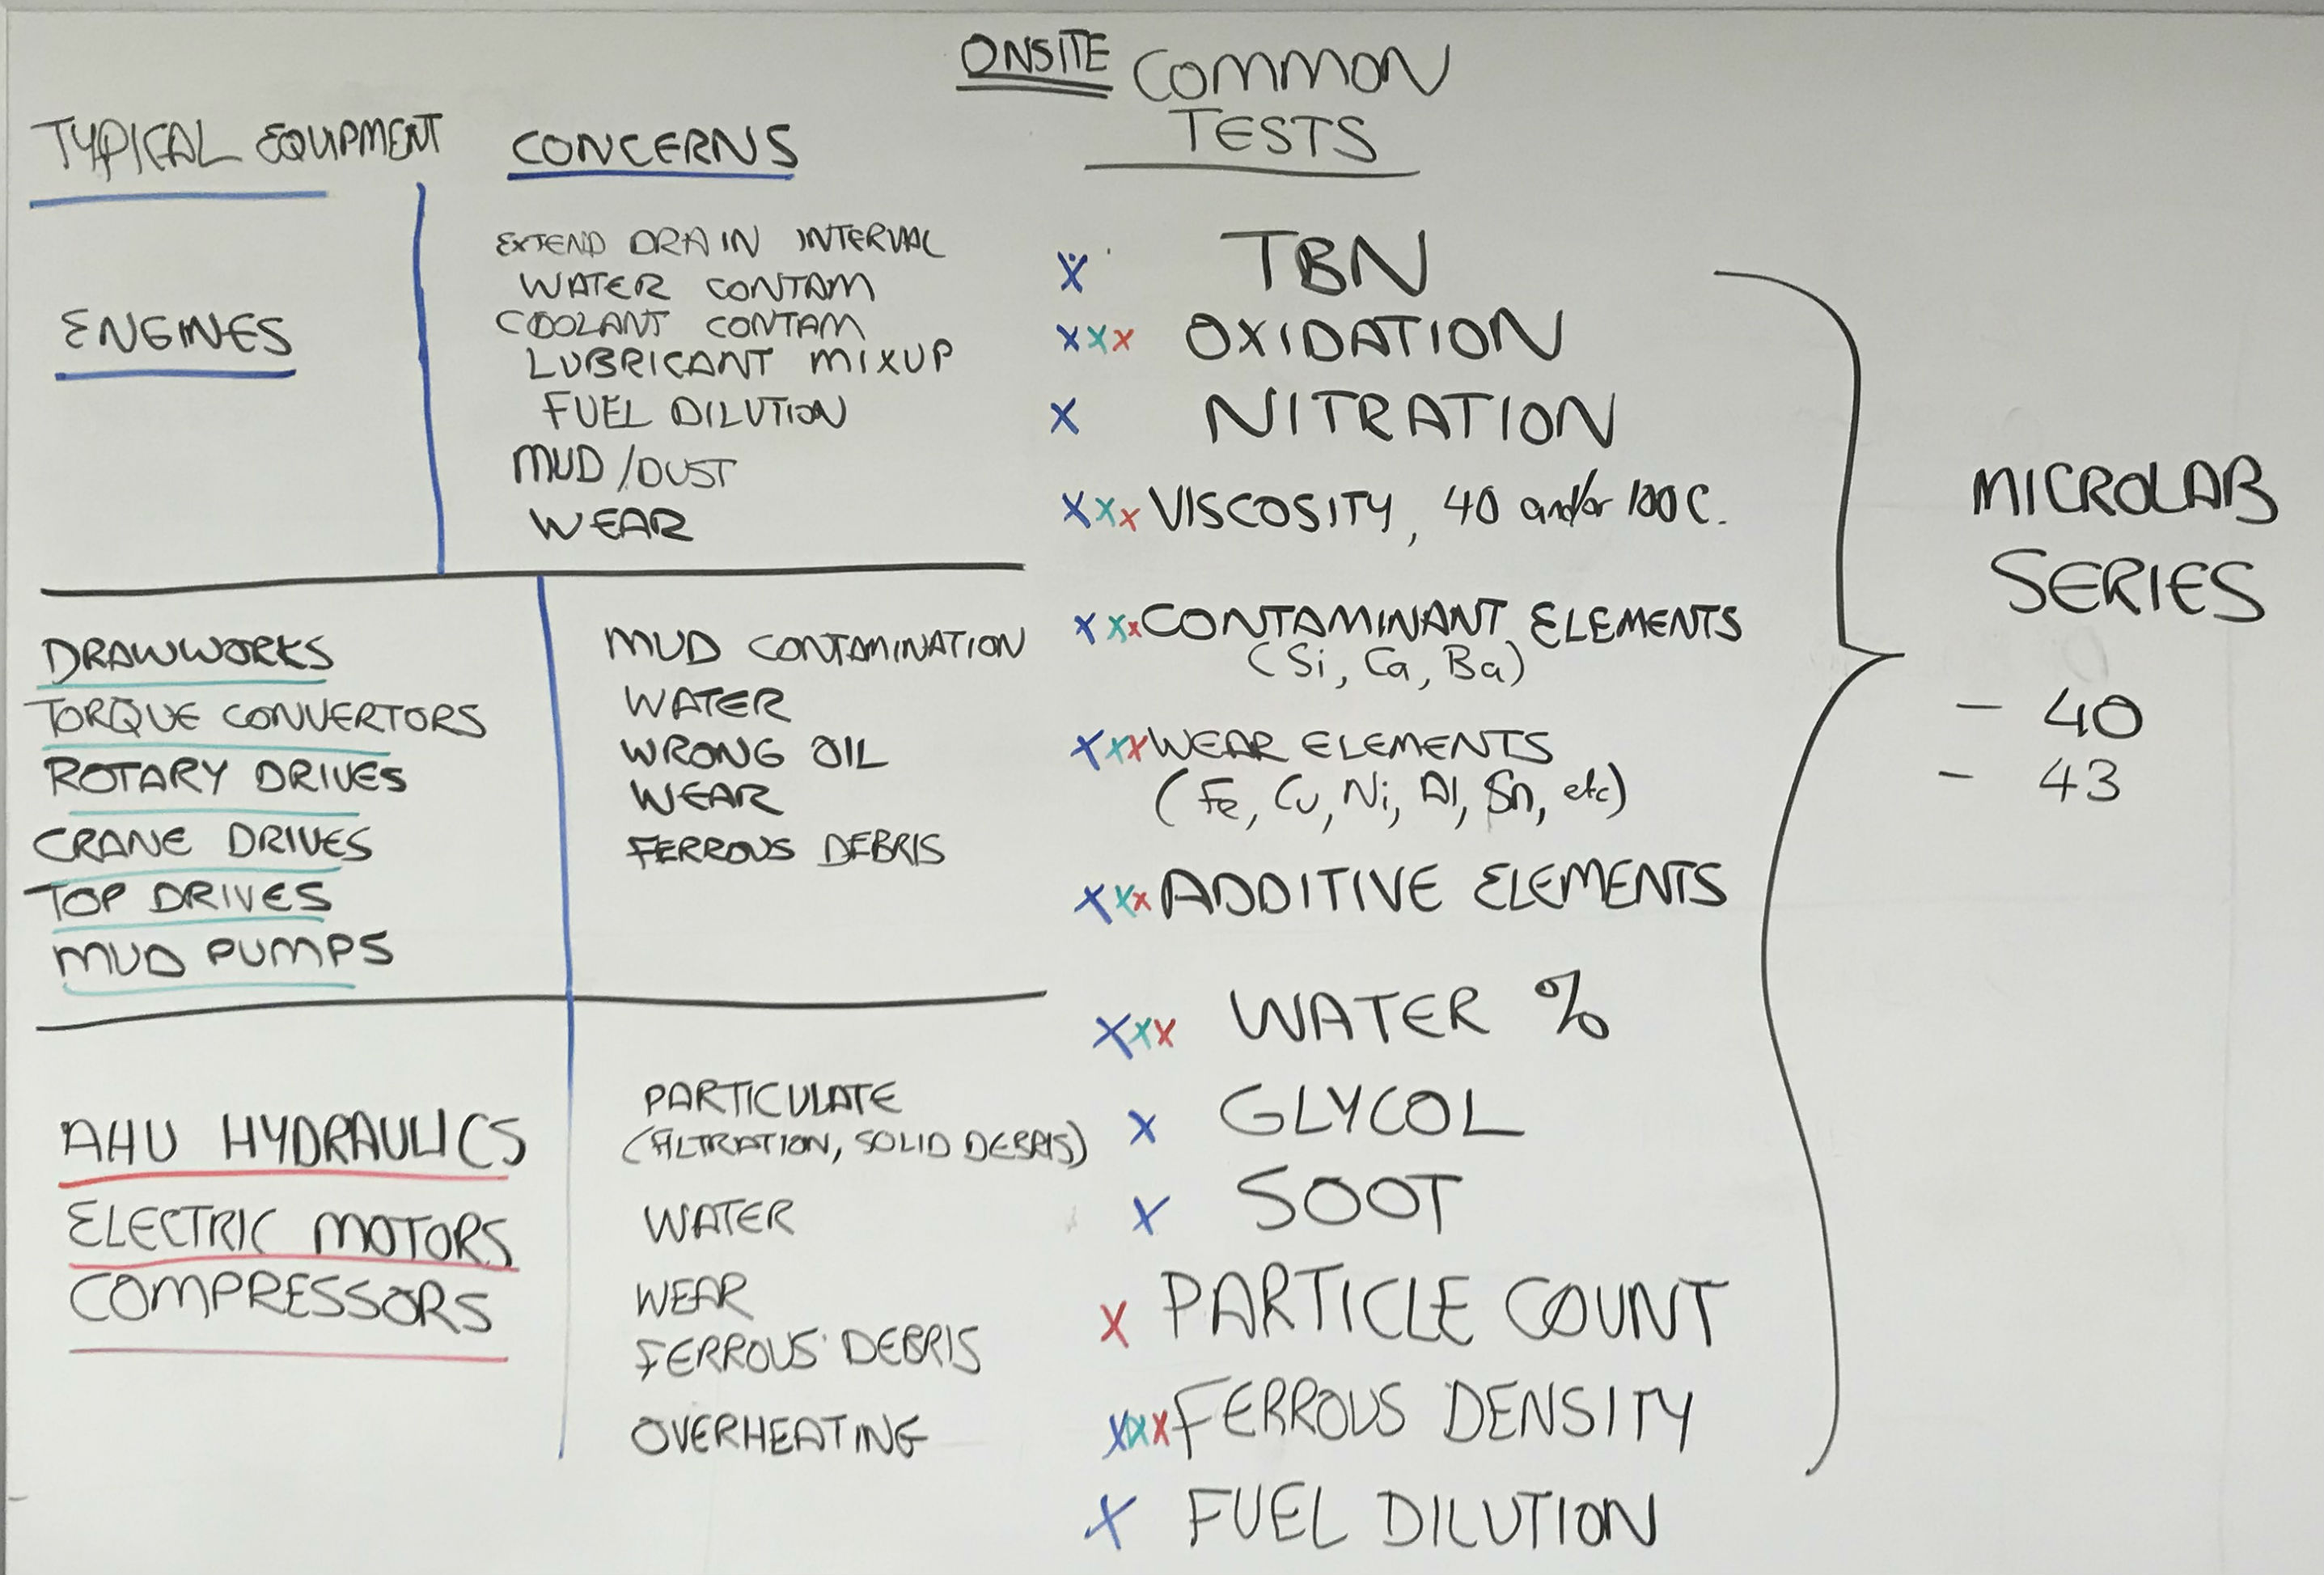 ONSITE COMMON
TESTS
TYPICAL EQUIPMENT
CONCERNS
ENGINES
EXTEND DRAIN INTERVAL
WATER CONTAM
COOLANT CONTAM
LUBRICANT MIXUP
FUEL DILUTION
MUD/DUST
WEAR
DRAWWORKS
TORQUE CONVERTORS
ROTARY DRIVES
CRANE DRIVES
TOP DRIVES
MUD PUMPS
MUD CONTAMINATION
WATER
WRONG OIL
WEAR
FERROUS DEBRIS
AHU HYDRAULICS
ELECTRIC MOTORS
COMPRESSORS
PARTICULATE
(FILTRATION, SOLID DEBRIS)
WATER
WEAR
FERROUS DEBRIS
OVERHEATING
X TBN
XXX OXIDATION
X NITRATION
XXX VISCOSITY, 40 and/or 100 C.
XXX CONTAMINANT ELEMENTS
(Si, Ca, Ba)
XXX WEAR ELEMENTS
(Fe, Cu, Ni, Al, Sn, etc)
XXX ADDITIVE ELEMENTS
XXX WATER %
X GLYCOL
X SOOT
X PARTICLE COUNT
XXX FERROUS DENSITY
X FUEL DILUTION
MICROLAB
SERIES
- 40
- 43